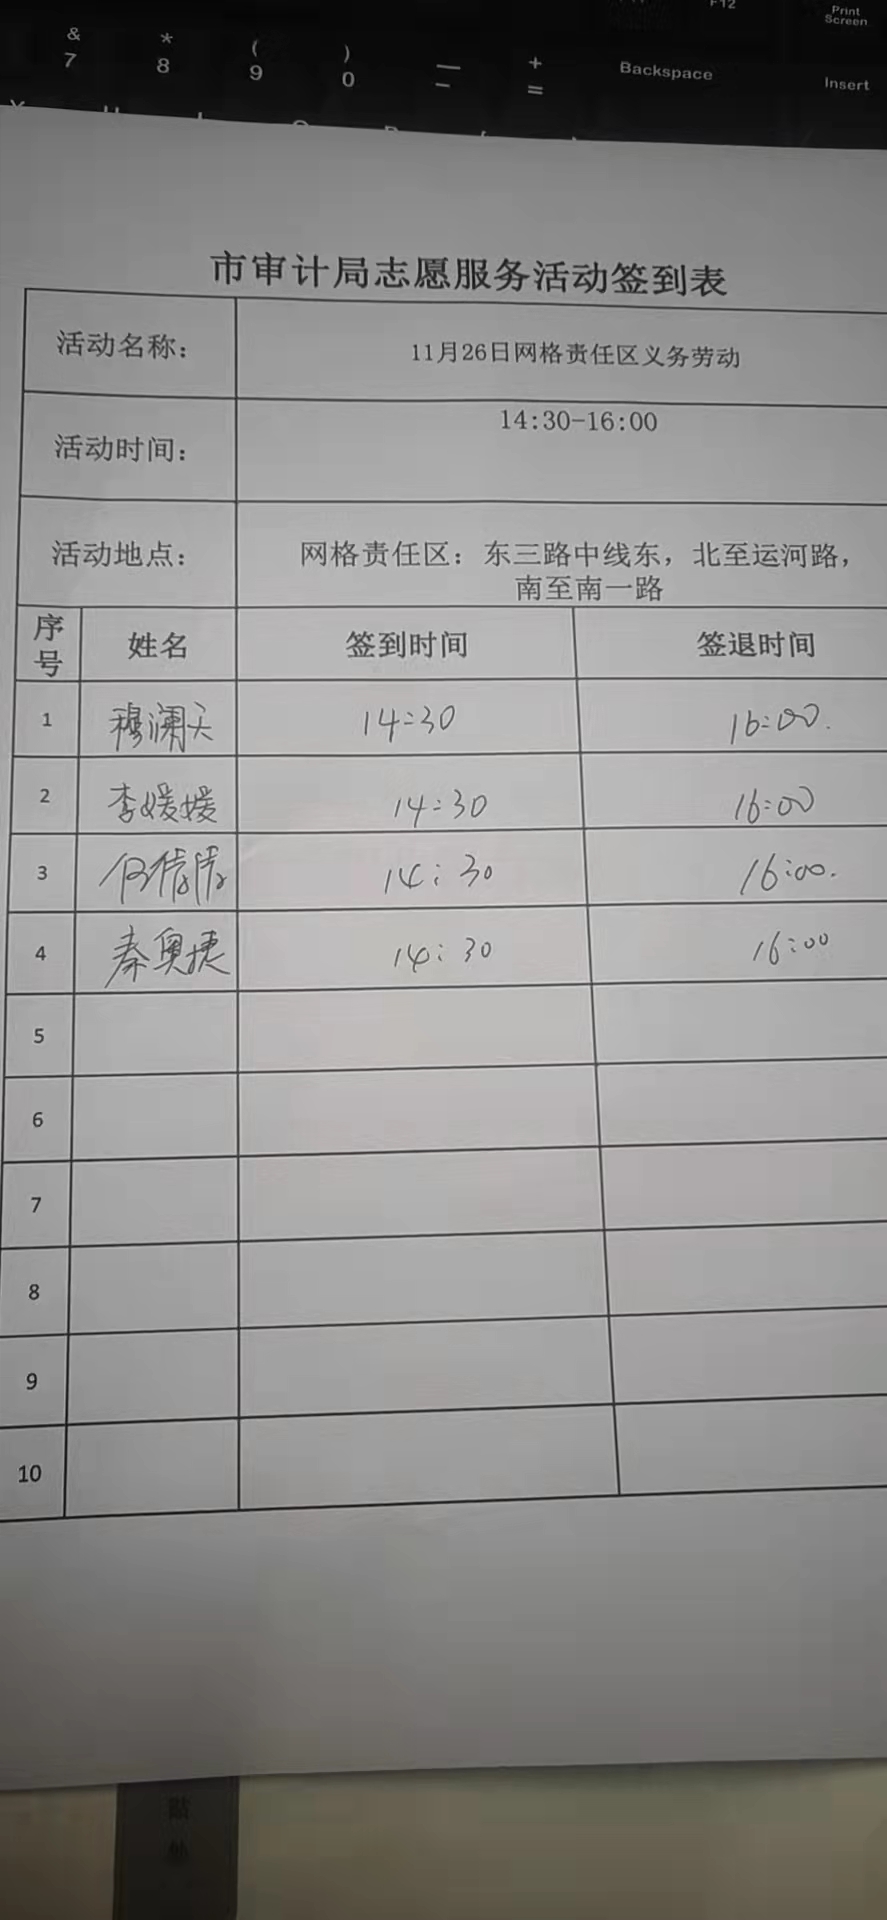 & * ( ) — + F12 Print Screen
7 8 9 0 - = Backspace Insert
市审计局志愿服务活动签到表
活动名称： 11月26日网格责任区义务劳动
活动时间： 14:30-16:00
活动地点： 网格责任区：东三路中线东，北至运河路，
南至南一路
序号 姓名 签到时间 签退时间
1 穆澜天 14:30 16:00.
2 李媛媛 14:30 16:00
3 何倩倩 14:30 16:00.
4 秦奥捷 14:30 16:00
5
6
7
8
9
10